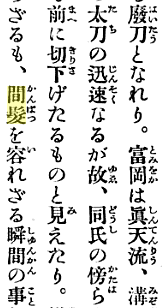 廢刀となれり。富岡は眞天流、溝
太刀の迅速なるが故、同氏の傍ら
前に切下げたるものと見えたり。
ざるも、間髮を容れざる瞬間の事